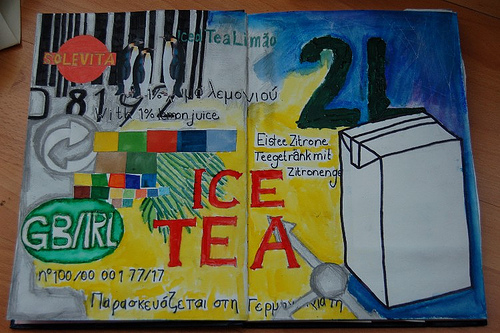 SOLEVITA
Iced Tea Limão
2L
με 1% χυμό λεμονιού
With 1% lemon juice
Eistee Zitrone
Teegetränk mit
Zitronenge
ICE
TEA
GB/IRL
nº100/00 001 77/17
Παρασκευάζεται στη Γερμανία